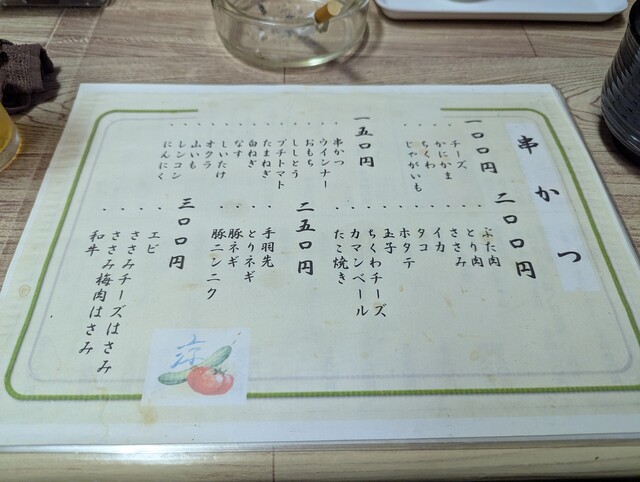 串かつ
一〇〇円
チーズ
かにかま
ちくわ
じゃがいも
一五〇円
串かつ
ウインナー
おもち
ししとう
プチトマト
たまねぎ
白ねぎ
なす
しいたけ
オクラ
山いも
レンコン
にんにく
二〇〇円
ぶた肉
とり肉
ささみ
イカ
タコ
ホタテ
玉子
ちくわチーズ
カマンベール
たこ焼き
二五〇円
手羽先
とりネギ
豚ネギ
豚ニンニク
三〇〇円
エビ
ささみチーズはさみ
ささみ梅肉はさみ
和牛